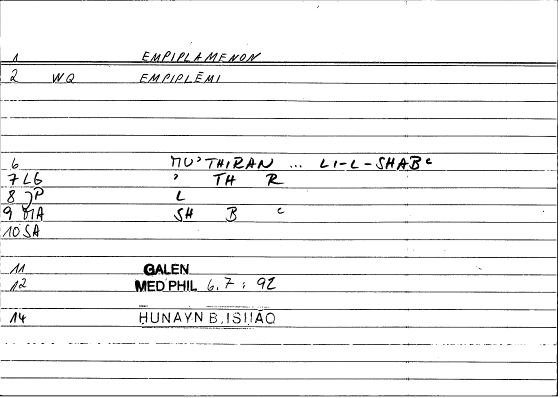 1 EMPIPLAMENON
2 WQ EMPIPLĒMI
6 MU'THIRAN ... LI-L-SHABC
7 LG ' TH R
8 JP L
9 MA SH B C
10 SA
11 GALEN
12 MED PHIL 6.7 : 92
14 HUNAYN B. ISḤĀQ